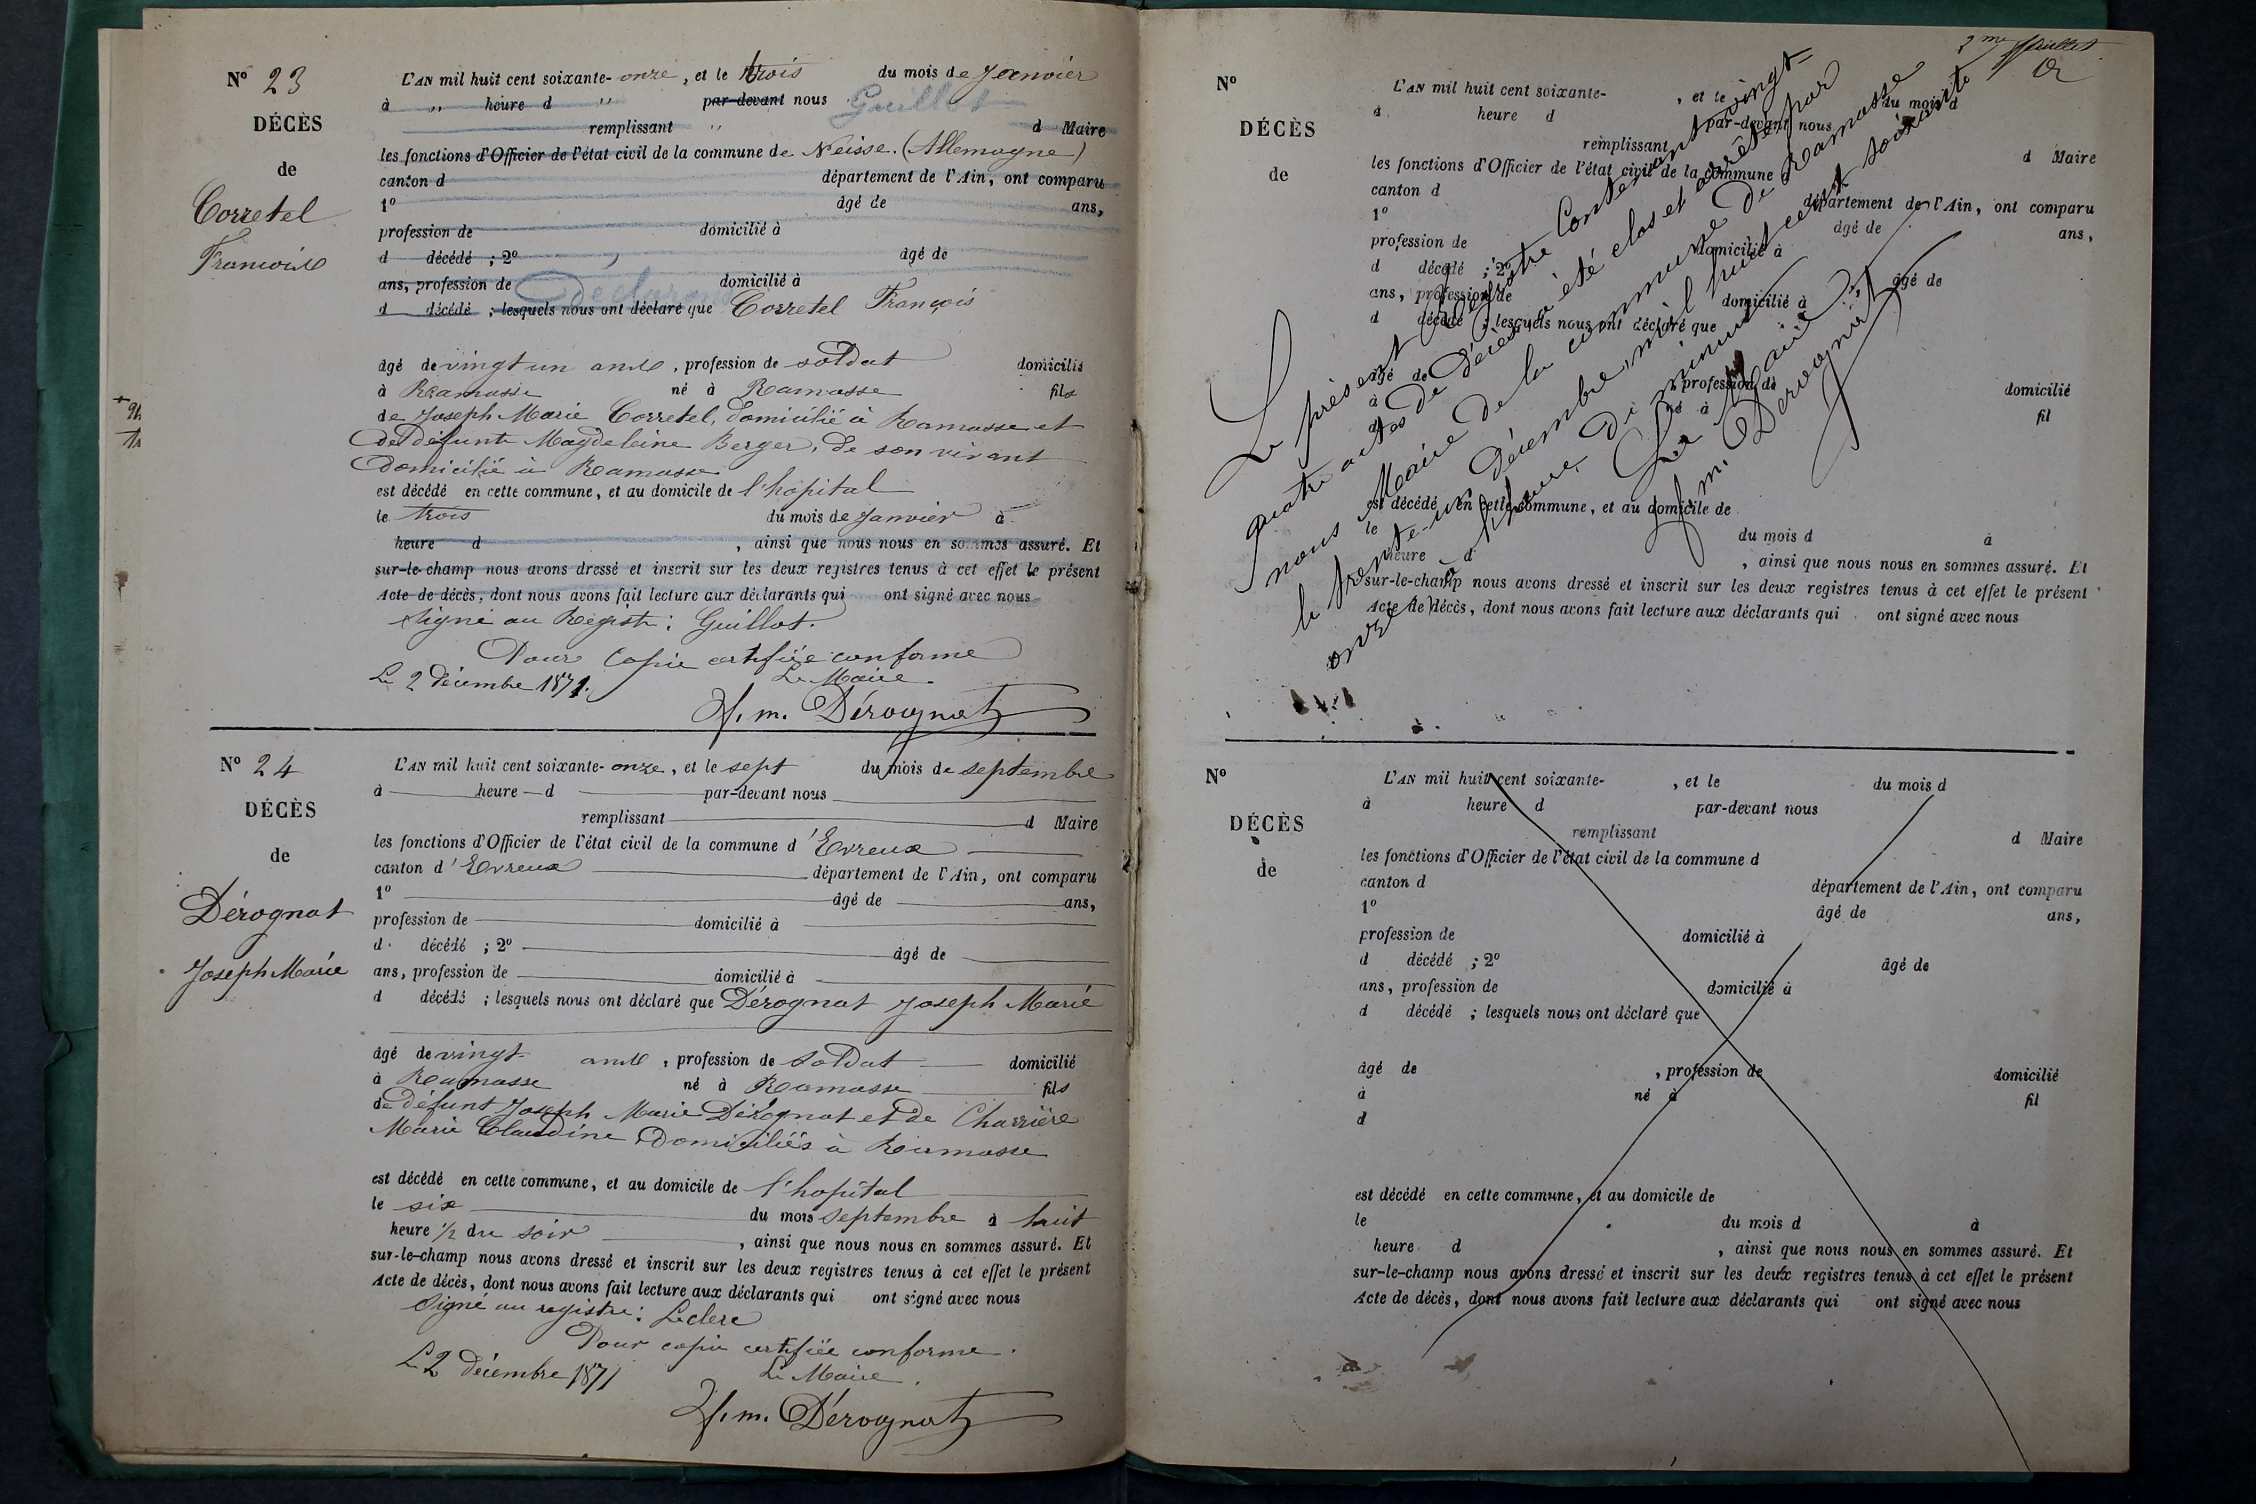 N° 23
DÉCÈS
de
Corretel
François
L'AN mil huit cent soixante-onze, et le trois du mois de Janvier
à " heure d " par-devant nous Guillot
remplissant " d Maire
les fonctions d'Officier de l'état civil de la commune de Neisse. (Allemagne)
canton d département de l'Ain, ont comparu
1° âgé de ans,
profession de domicilié à
d décédé ; 2° âgé de
ans, profession de domicilié à
d décédé ; lesquels nous ont déclaré que Corretel François
âgé de vingt un ans, profession de soldat domicilié
à Ramasse né à Ramasse fils
de Joseph Marie Corretel, domicilié à Ramasse et
de défunte Magdeleine Berger, de son vivant
domicilié à Ramasse
est décédé en cette commune, et au domicile de l'hôpital
le trois du mois de Janvier à
heure d , ainsi que nous nous en sommes assuré. Et
sur-le-champ nous avons dressé et inscrit sur les deux registres tenus à cet effet le présent
Acte de décès, dont nous avons fait lecture aux déclarants qui ont signé avec nous
Signé au Registre : Guillot.
Pour Copie certifiée conforme
Le 2 Décembre 1871. Le Maire.
J. m. Dérognat
N° 24
DÉCÈS
de
Dérognat
Joseph Marie
L'AN mil huit cent soixante-onze, et le sept du mois de septembre
à heure d par-devant nous
remplissant d Maire
les fonctions d'Officier de l'état civil de la commune d'Evreux
canton d'Evreux département de l'Ain, ont comparu
1° âgé de ans,
profession de domicilié à
d décédé ; 2° âgé de
ans, profession de domicilié à
d décédé ; lesquels nous ont déclaré que Dérognat Joseph Marie
âgé de vingt ans, profession de soldat domicilié
à Ramasse né à Ramasse fils
de défunt Joseph Marie Dérognat et de Charrière
Marie Claudine domiciliés à Ramasse
est décédé en cette commune, et au domicile de l'hopital
le six du mois septembre à huit
heure 1/2 du soir , ainsi que nous nous en sommes assuré. Et
sur-le-champ nous avons dressé et inscrit sur les deux registres tenus à cet effet le présent
Acte de décès, dont nous avons fait lecture aux déclarants qui ont signé avec nous
Signé au registre : Leclerc
Pour copie certifiée conforme.
Le 2 Décembre 1871 Le Maire.
J. m. Dérognat
N°
DÉCÈS
de
L'AN mil huit cent soixante- , et le du mois d
à heure d par-devant nous
remplissant d Maire
les fonctions d'Officier de l'état civil de la commune
canton d département de l'Ain, ont comparu
1° âgé de ans,
profession de domicilié à
d décédé ; 2° âgé de
ans, profession de domicilié à
d décédé ; lesquels nous ont déclaré que
âgé de profession de domicilié
à né à fil
d
est décédé en cette commune, et au domicile de
le du mois d à
heure d , ainsi que nous nous en sommes assuré. Et
sur-le-champ nous avons dressé et inscrit sur les deux registres tenus à cet effet le présent
Acte de décès, dont nous avons fait lecture aux déclarants qui ont signé avec nous
Le présent Registre Contenant vingt-
quatre actes de Décès a été clos et arrêté par
nous Maire de la commune de Ramasse
le trente-un Décembre, mil huit cent soixante
onze à l'heure de minuit
Le Maire
J. m. Dérognat
N°
DÉCÈS
de
L'AN mil huit cent soixante- , et le du mois d
à heure d par-devant nous
remplissant d Maire
les fonctions d'Officier de l'état civil de la commune d
canton d département de l'Ain, ont comparu
1° âgé de ans,
profession de domicilié à
d décédé ; 2° âgé de
ans, profession de domicilié à
d décédé ; lesquels nous ont déclaré que
âgé de , profession de domicilié
à né à fil
d
est décédé en cette commune, et au domicile de
le du mois d à
heure d , ainsi que nous nous en sommes assuré. Et
sur-le-champ nous avons dressé et inscrit sur les deux registres tenus à cet effet le présent
Acte de décès, dont nous avons fait lecture aux déclarants qui ont signé avec nous